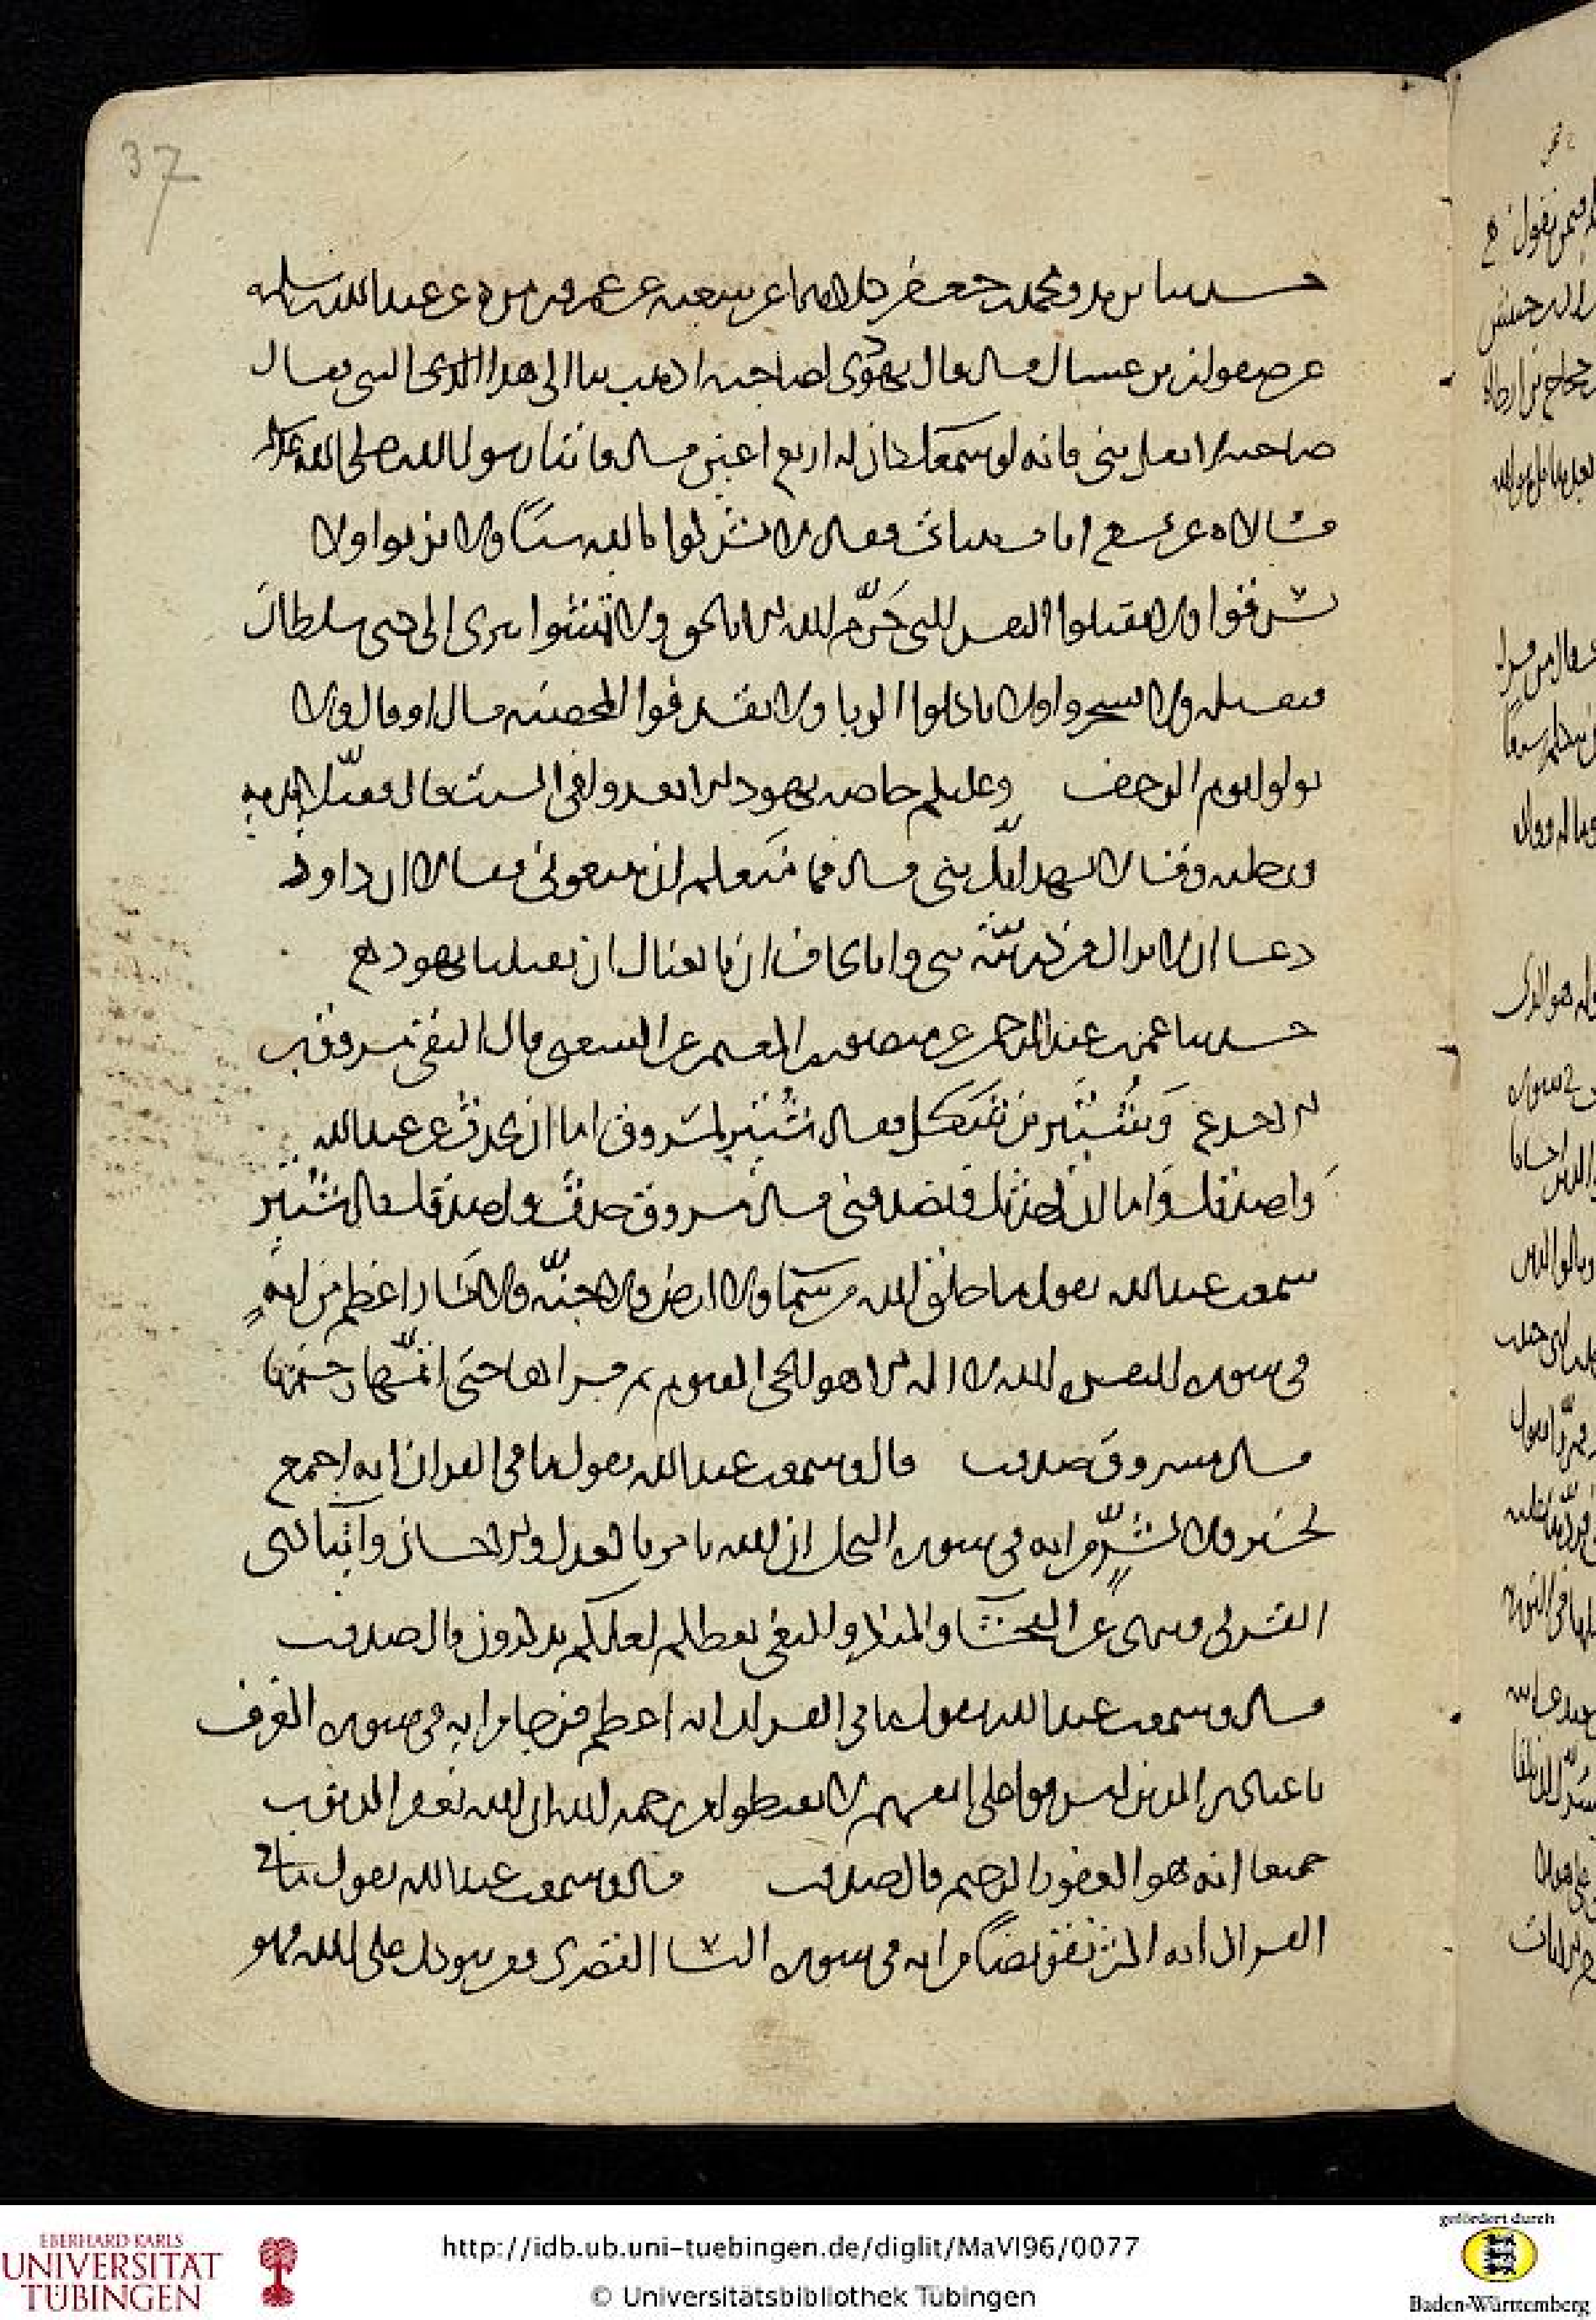 37
حدثنا يزيد ومحمد بن جعفر كلاهما عن شعبة عن عمرو بن مرة عن عبد الله بن سلمة
عن صفوان بن عسال قال قال يهودي لصاحبه اذهب بنا الى هذا النبي فقال
صاحبه لا تقل نبي فانه لو سمعك كان له اربع اعين قال فاتيا رسول الله صلى الله عليه
فسالاه عن تسع ايات بينات فقال لا تشركوا بالله شيئا ولا تزنوا ولا
تسرقوا ولا تقتلوا النفس التي حرّم الله الا بالحق ولا تمشوا ببرى الى ذي سلطان
فيقتله ولا تسحروا ولا تاكلوا الربا ولا تقذفوا المحصنة قال او قال ولا
تولوا يوم الزحف وعليكم خاصة يهود الا تعدوا في السبت قال فقبّلا يديه
ورجليه وقالا نشهد انّك نبي قال فما يمنعكم ان تتبعوني فقالا ان داود
دعا ان لا يزال من ذريّته نبي وانا نخاف ان اتبعناك ان تقتلنا يهود
حدثنا عمر بن عبد الرحمن عن منصور بن المعتمر عن الشعبي قال التقى مسروق بن
الاجدع وشُتَير بن شَكَل فقال شُتَير لمسروق اما ان تحدث عن عبد الله
واصدقك واما ان احدثك وتصدقني قال مسروق حدث واصدقك قال شُتَير
سمعت عبد الله يقول ما خلق الله من سما ولا ارض ولا جنّة ولا نار اعظم من ايةٍ
في سورة البقرة الله لا اله الا هو الحي القيوم ثم قراها حتى اتمّها
قال مسروق صدقت قال وسمعت عبد الله يقول ما في القران اية اجمع
لخير ولا لشرٍّ من اية في سورة النحل ان الله يامر بالعدل والاحسان وايتا ذي
القربى وينهى عن الفحشا والمنكر والبغي يعظكم لعلكم تذكرون قال صدقت
قال وسمعت عبد الله يقول ما في القران اية اعظم فرجا من اية في سورة الغرف
يا عبادي الذين اسرفوا على انفسهم لا تقنطوا من رحمة الله ان الله يغفر الذنوب
جميعا انه هو الغفور الرحيم قال صدقت قال وسمعت عبد الله يقول ما في
القران اية اكثر تفويضا من اية في سورة النسا القصرى ومن يتوكل على الله فهو
http://idb.ub.uni-tuebingen.de/diglit/MaVI96/0077
© Universitätsbibliothek Tübingen
EBERHARD KARLS
UNIVERSITÄT
TÜBINGEN
gefördert durch
Baden-Württemberg